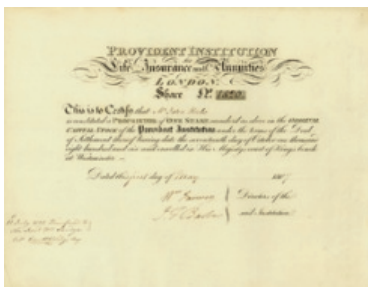 PROVIDENT INSTITUTION
for
Life Insurance and Annuities
LONDON.
Share No.
This is to Certify that Mr. John
is constituted a PROPRIETOR of ONE SHARE numbered as above in the
CAPITAL STOCK of the Provident Institution under the terms of the Deed
of Settlement thereof bearing date the seventeenth day of October one thousand
eight hundred and six and enrolled in His Majestys court of Kings bench
at Westminster
Dated this first day of May 1807
Wm
Directors of the
J. T. Barber
said Institution